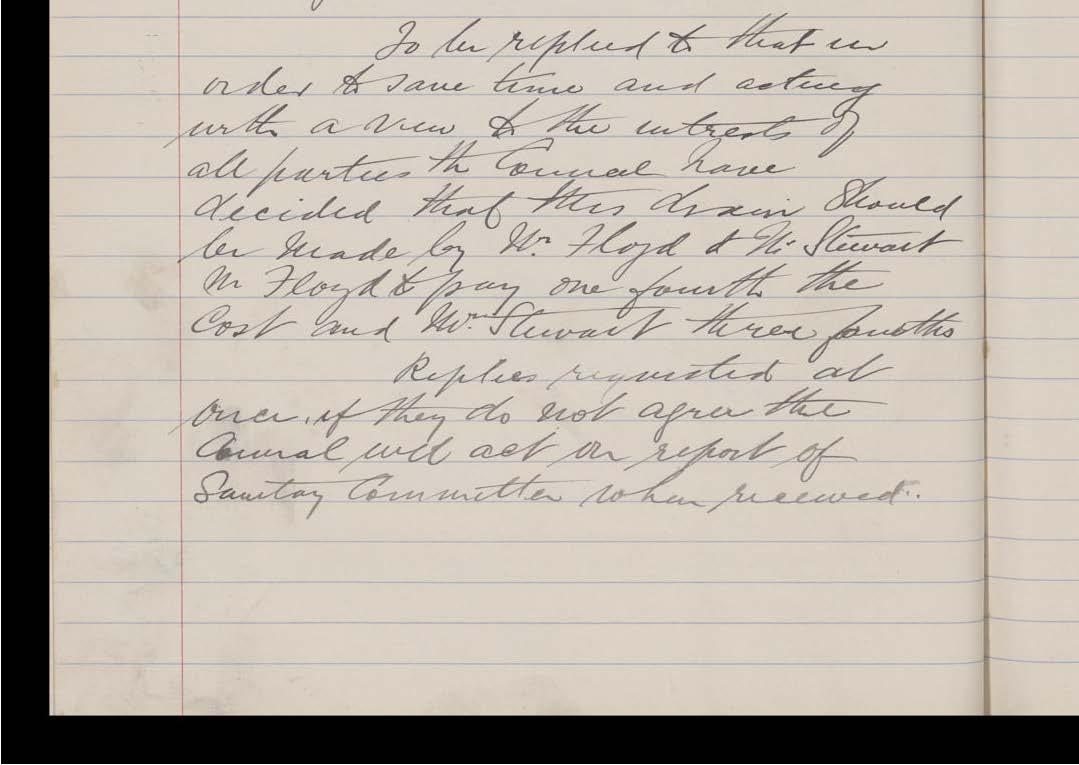 To be replied to that in
order to save time and acting
with a view to the intrests of
all parties the Council have
decided that this drain Should
be Made by Mr. Floyd & Mr Stewart
Mr Floyd to pay one fourth the
Cost and Mrs Stewart three fourths
Replies requested at
once, if they do not agree the
Council will act on report of
Sanitay Committee when received.